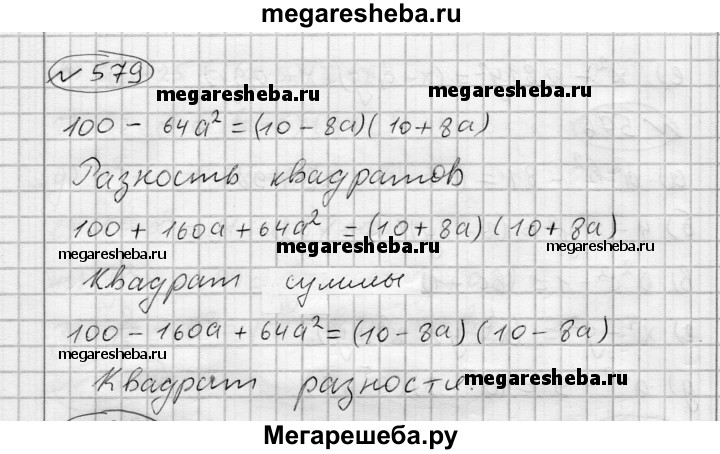 megaresheba.ru
№ 579
megaresheba.ru megaresheba.ru
100 - 64a² = (10 - 8a)(10 + 8a)
Разность квадратов
100 + 160a + 64a² = (10 + 8a)(10 + 8a)
megaresheba.ru megaresheba.ru megaresheba.ru
Квадрат суммы
100 - 160a + 64a² = (10 - 8a)(10 - 8a)
megaresheba.ru megaresheba.ru
Квадрат разности.
megaresheba.ru
Мегарешеба.ру